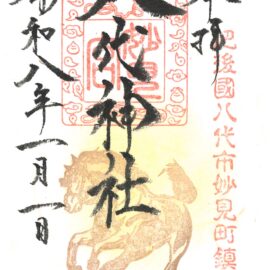 奉拝
肥後國八代市妙見町鎮
八代神社
令和八年一月一日